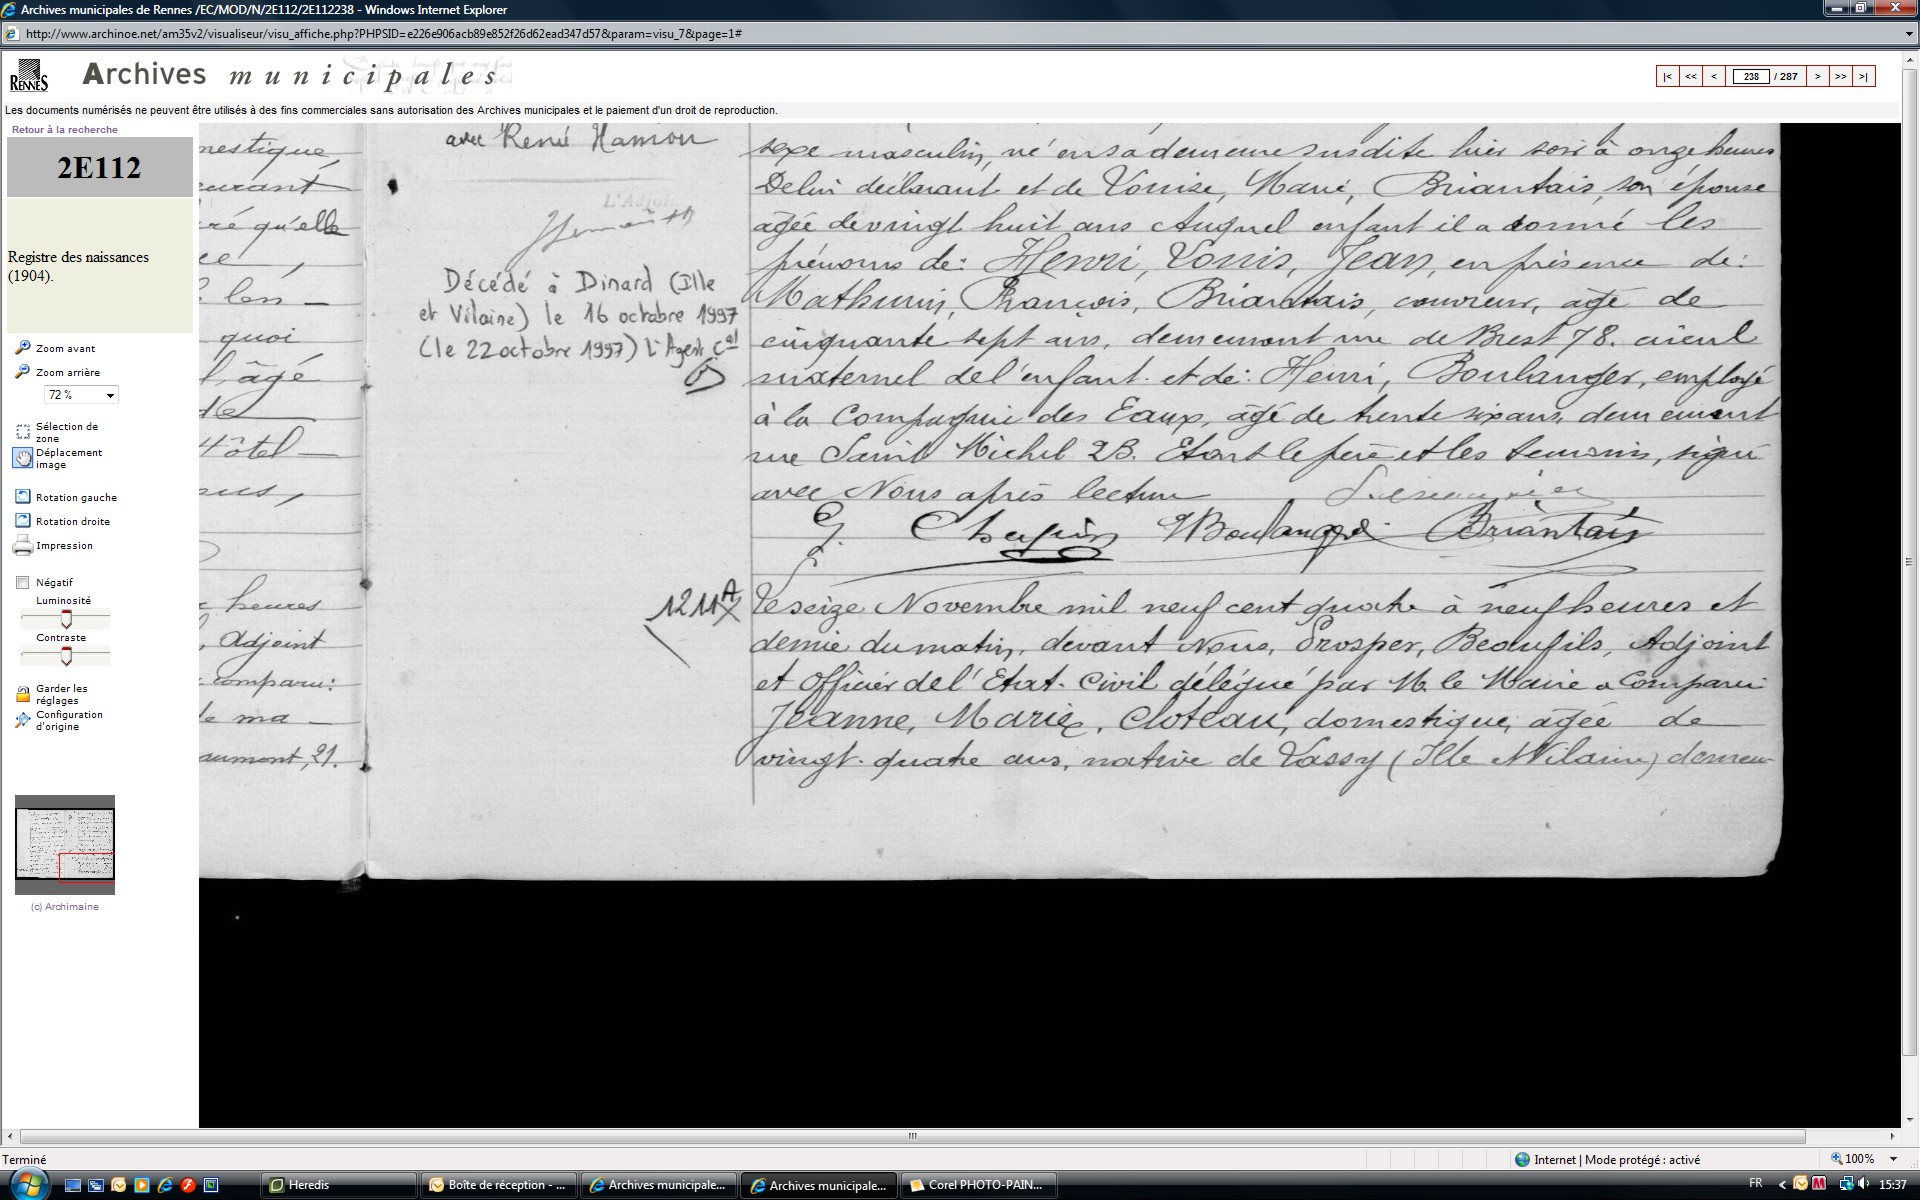 Archives municipales de Rennes /EC/MOD/N/2E112/2E112238 - Windows Internet Explorer
http://www.archinoe.net/am35v2/visualiseur/visu_affiche.php?PHPSID=e226e906acb89e852f26d62ead347d57&param=visu_7&page=1#
RENNES
Archives municipales
|< << < 238 / 287 > >> >|
Les documents numérisés ne peuvent être utilisés à des fins commerciales sans autorisation des Archives municipales et le paiement d'un droit de reproduction.
Retour à la recherche
2E112
Registre des naissances
(1904).
Zoom avant
Zoom arrière
72 %
Sélection de
zone
Déplacement
image
Rotation gauche
Rotation droite
Impression
Négatif
Luminosité
Contraste
Garder les
réglages
Configuration
d'origine
(c) Archimaine
nestique,
ré qu'elle
quoi
l'âgé
de
Hôtel
heures
adjoint
comparu:
de ma
aumont, 21.
avec René Hamon
L'Adjoint
Décédé à Dinard (Ille
et Vilaine) le 16 octobre 1997
(le 22 octobre 1997) L'Agent Cal
sexe masculin, né en sa demeure susdite hier soir à onze heures
De lui déclarant et de Louise, Marie, Briantais, son épouse
âgée de vingt huit ans Auquel enfant il a donné les
prénoms de: Henri, Louis, Jean, en présence de:
Mathurin, François, Briantais, couvreur, âgé de
cinquante sept ans, demeurant rue de Brest 78. aïeul
maternel de l'enfant. et de: Henri, Boulanger, employé
à la Compagnie des Eaux, âgé de trente six ans, demeurant
rue Saint Michel 23. Etant le père et les temoins, signé
avec Nous après lecture
Boulanger Briantais
1211 A
Le seize Novembre mil neuf cent quatre à neuf heures et
demie du matin, devant Nous, Prosper, Beaufils, Adjoint
et Officier de l'Etat-Civil délégué par M. le Maire a Comparu
Jeanne, Marie, Cloteau, domestique, agée de
vingt-quatre ans, native de Tassy (Ille et Vilaine) demeu-
Terminé
Internet | Mode protégé : activé
100%
Heredis
Boîte de réception - ...
Archives municipale...
Archives municipale...
Corel PHOTO-PAIN...
FR
15:37